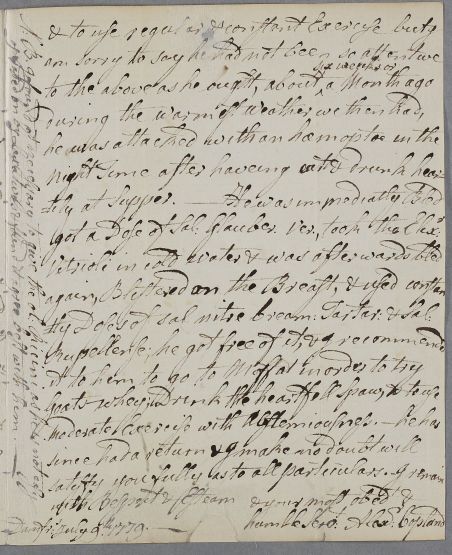 & to use regular & constant Exercise but I
am sorry to say he had not been so attentive
six weeks or
to the above as he ought, about a Month ago
during the warmest Weather we then had,
he was attacked with an hæmoptoe in the
night time after haveing eat & drunk hear
tily at Supper. — He was immediatly Bled
got a Dose of Sal: Glauber. Ver, took the Elix.
Vitrioli in cold water & was afterwards bled
again, Blistered on the Breast, & used constan
tly Doses of sal nitre cream: Tartar. & Sal:
Rupellens: he got free of it, & I recommended
it to him to go to Moffat in order to try
Goats whey, Drink the heartfell spaw, & to use
moderate Exercise with Abstemiousness. — he has
since had a return & I make no doubt will
satisfy you fully as to all particulars. I remain
with Respect & Esteem & your most obed.t &
humble Serv.t Alex.r Copland
Dumfries July 9th. 1779. —